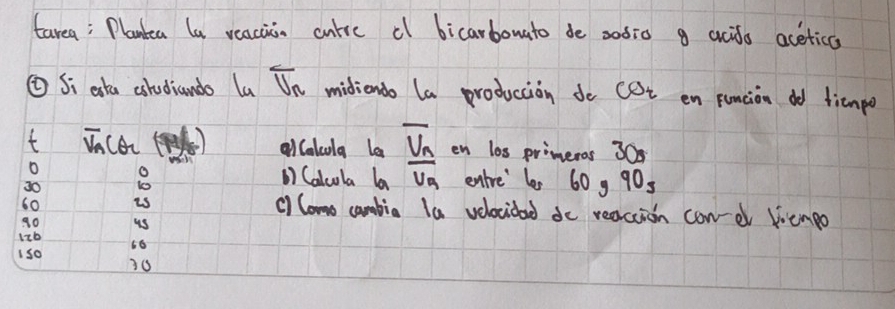 tarea: Plantea la reacción entre el bicarbonato de sodio y acido acético
② Si esta estudiando la V̅n midiendo la producción de CO2 en función del tiempo
t V̅n CO2
0 0
30 10
60 25
90 45
120 60
150 70
a) Calcula la V̅n en los primeros 30s
b) Calcula la V̅n entre los 60 y 90s
c) Como cambia la velocidad de reacción con el tiempo